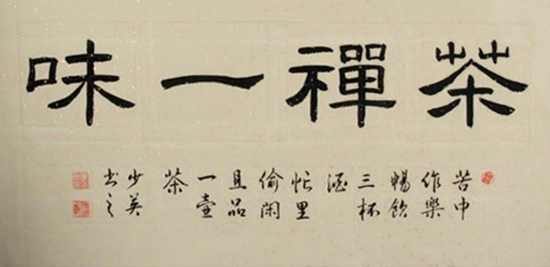 茶禪一味
苦中
作樂
暢飲
三杯
酒
忙里
偷閑
且品
一壺
茶
少英
书之